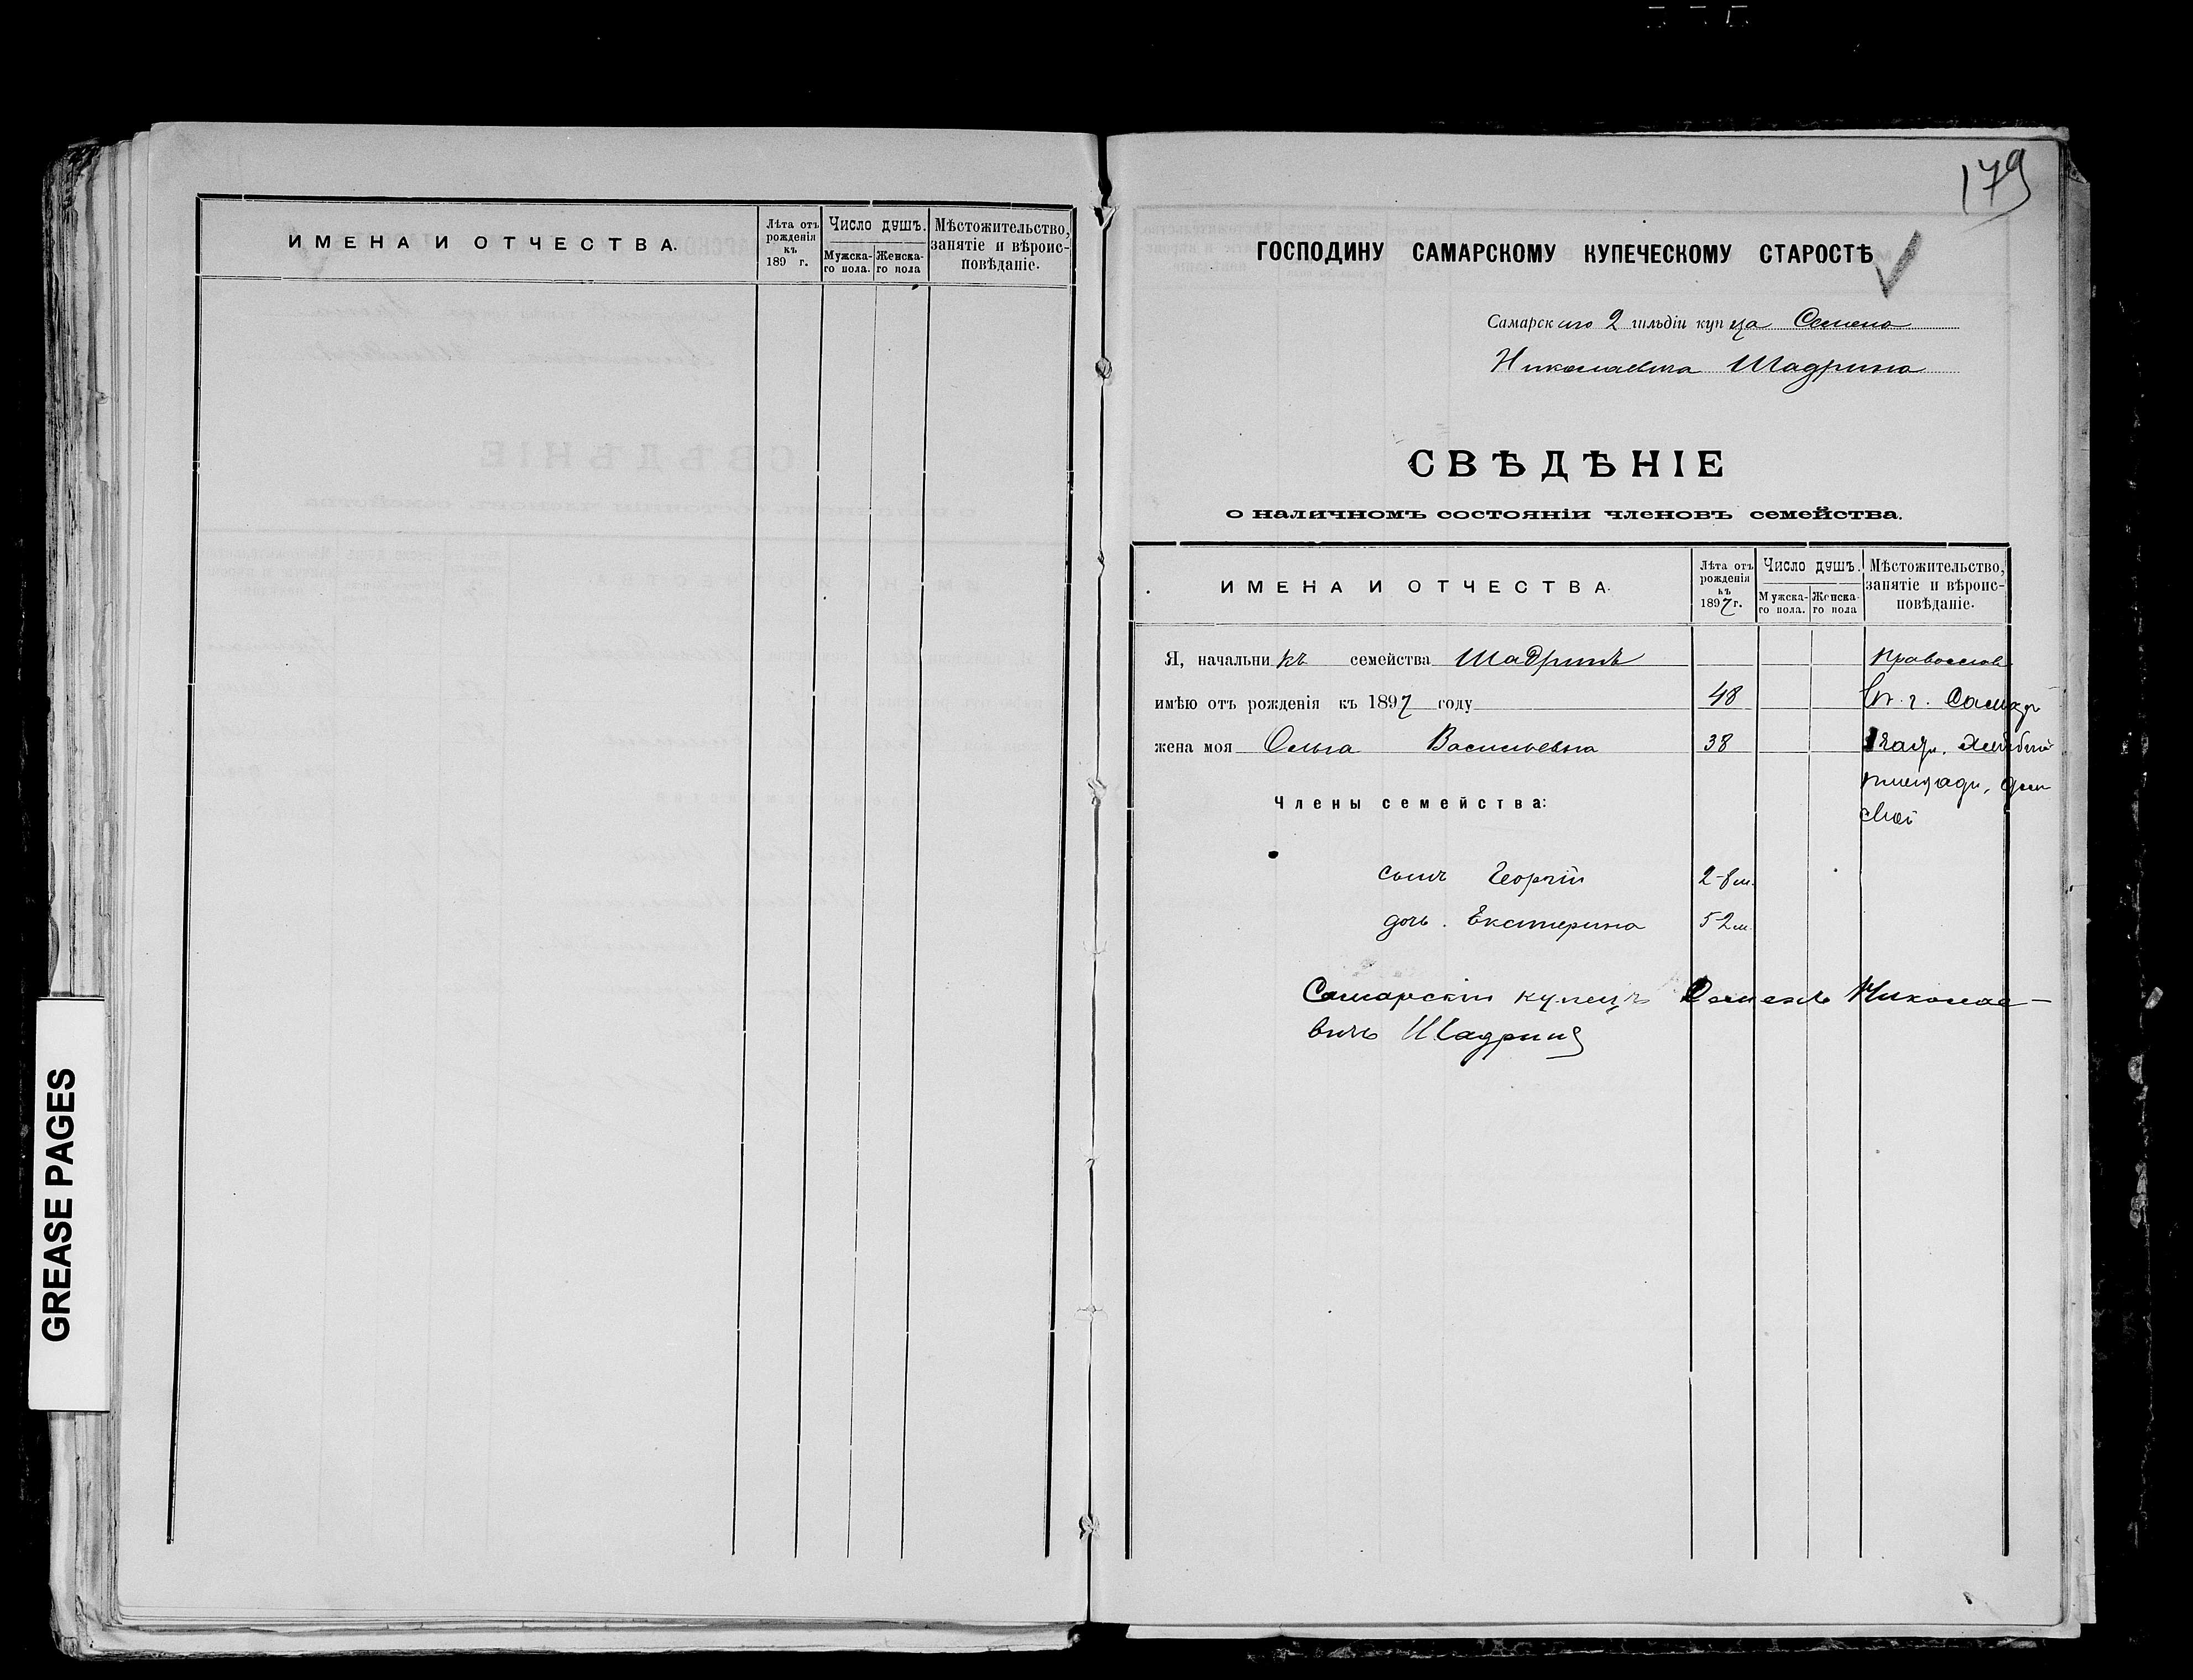 ИМЕНА И ОТЧЕСТВА.
Лѣта отъ рожденія къ 189 г.
Число душъ.
Мужска-го пола.
Женска-го пола
Мѣстожительство, занятіе и вѣроис-повѣданіе.
GREASE PAGES
179
ГОСПОДИНУ САМАРСКОМУ КУПЕЧЕСКОМУ СТАРОСТѢ
Самарскаго 2 гильдіи купца Семена
Николаевича Шадрина
СВѢДѢНІЕ
о наличномъ состояніи членовъ семейства.
ИМЕНА И ОТЧЕСТВА.
Лѣта отъ рожденія къ 1897 г.
Число душъ.
Мужска-го пола.
Женска-го пола
Мѣстожительство, занятіе и вѣроис-повѣданіе.
Я, начальникъ семейства Шадринъ Православ
имѣю отъ рожденія къ 1897 году 48 Въ г. Самарѣ
жена моя Ольга Васильевна 38 Хлѣбной
площади, домъ
свой
Члены семейства:
сынъ Георгій 2-8 м.
дочь. Екатерина 5 2 м.
Самарскій купецъ Семенъ Николае-
вичъ Шадринъ